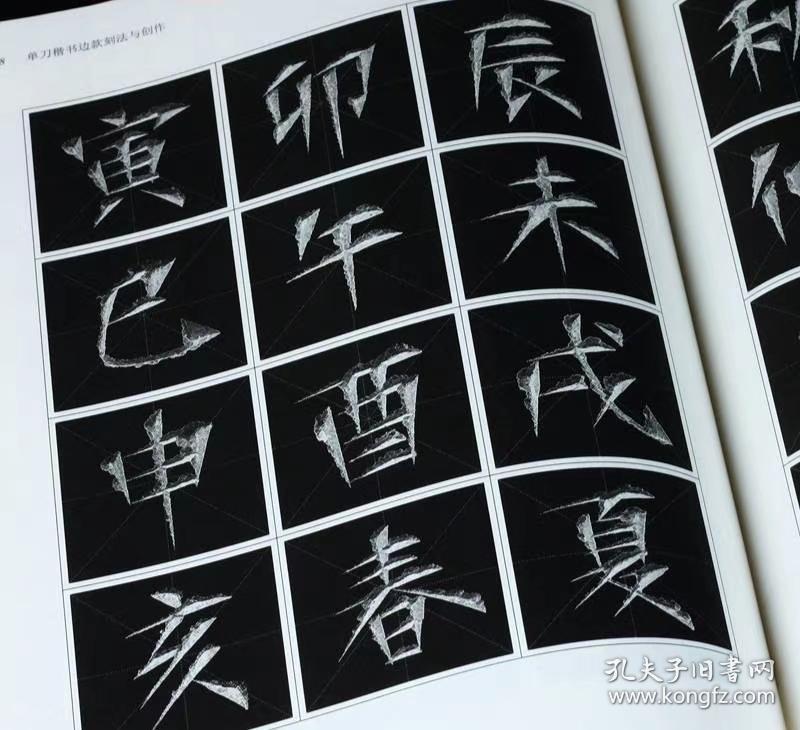 8 单刀楷书边款刻法与创作
寅 卯 辰
巳 午 未
申 酉 戌
亥 春 夏
孔夫子旧書网
www.kongfz.com